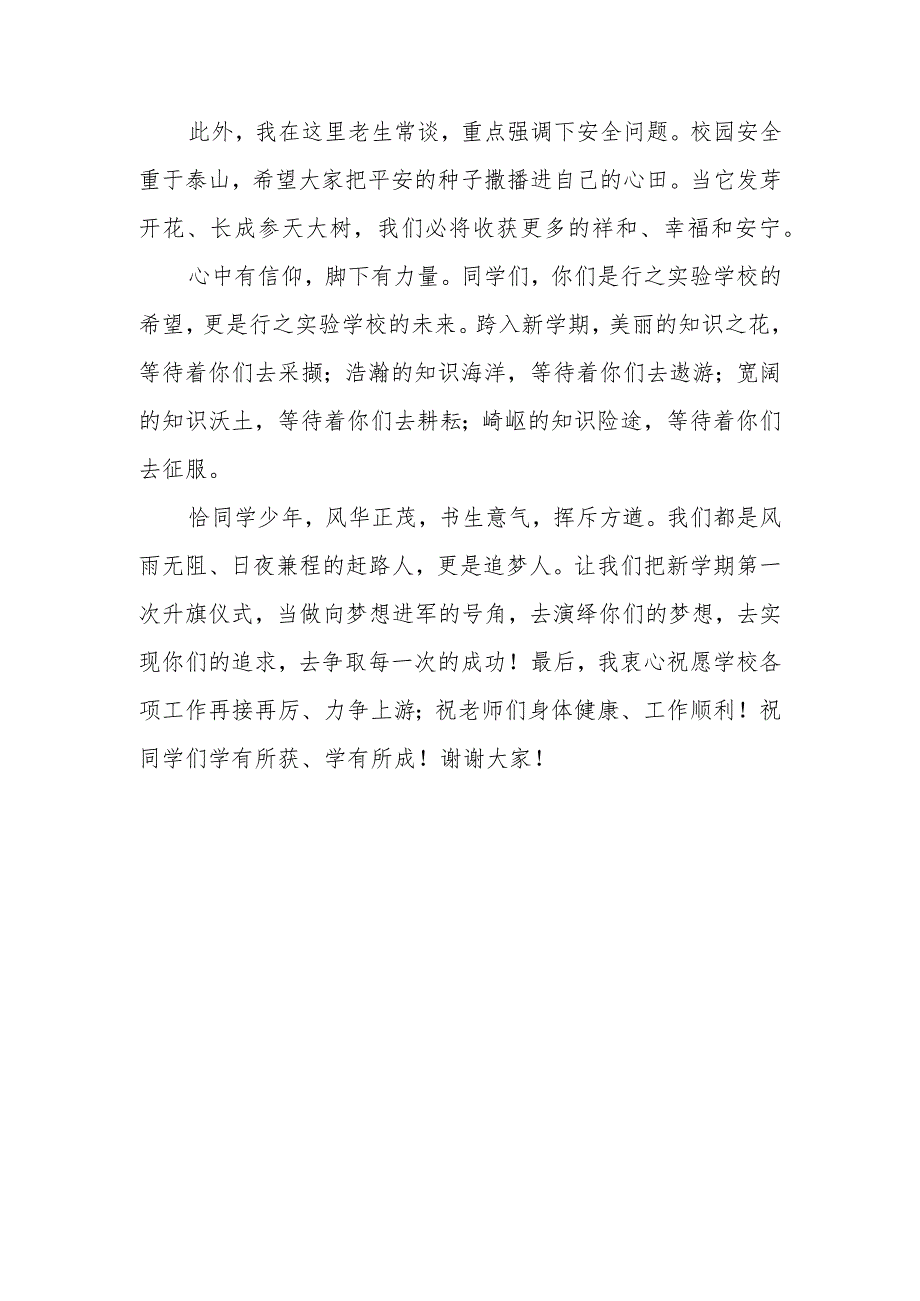 此外，我在这里老生常谈，重点强调下安全问题。校园安全
重于泰山，希望大家把平安的种子撒播进自己的心田。当它发芽
开花、长成参天大树，我们必将收获更多的祥和、幸福和安宁。
心中有信仰，脚下有力量。同学们，你们是行之实验学校的
希望，更是行之实验学校的未来。跨入新学期，美丽的知识之花，
等待着你们去采撷；浩瀚的知识海洋，等待着你们去遨游；宽阔
的知识沃土，等待着你们去耕耘；崎岖的知识险途，等待着你们
去征服。
恰同学少年，风华正茂，书生意气，挥斥方遒。我们都是风
雨无阻、日夜兼程的赶路人，更是追梦人。让我们把新学期第一
次升旗仪式，当做向梦想进军的号角，去演绎你们的梦想，去实
现你们的追求，去争取每一次的成功！最后，我衷心祝愿学校各
项工作再接再厉、力争上游；祝老师们身体健康、工作顺利！祝
同学们学有所获、学有所成！谢谢大家！